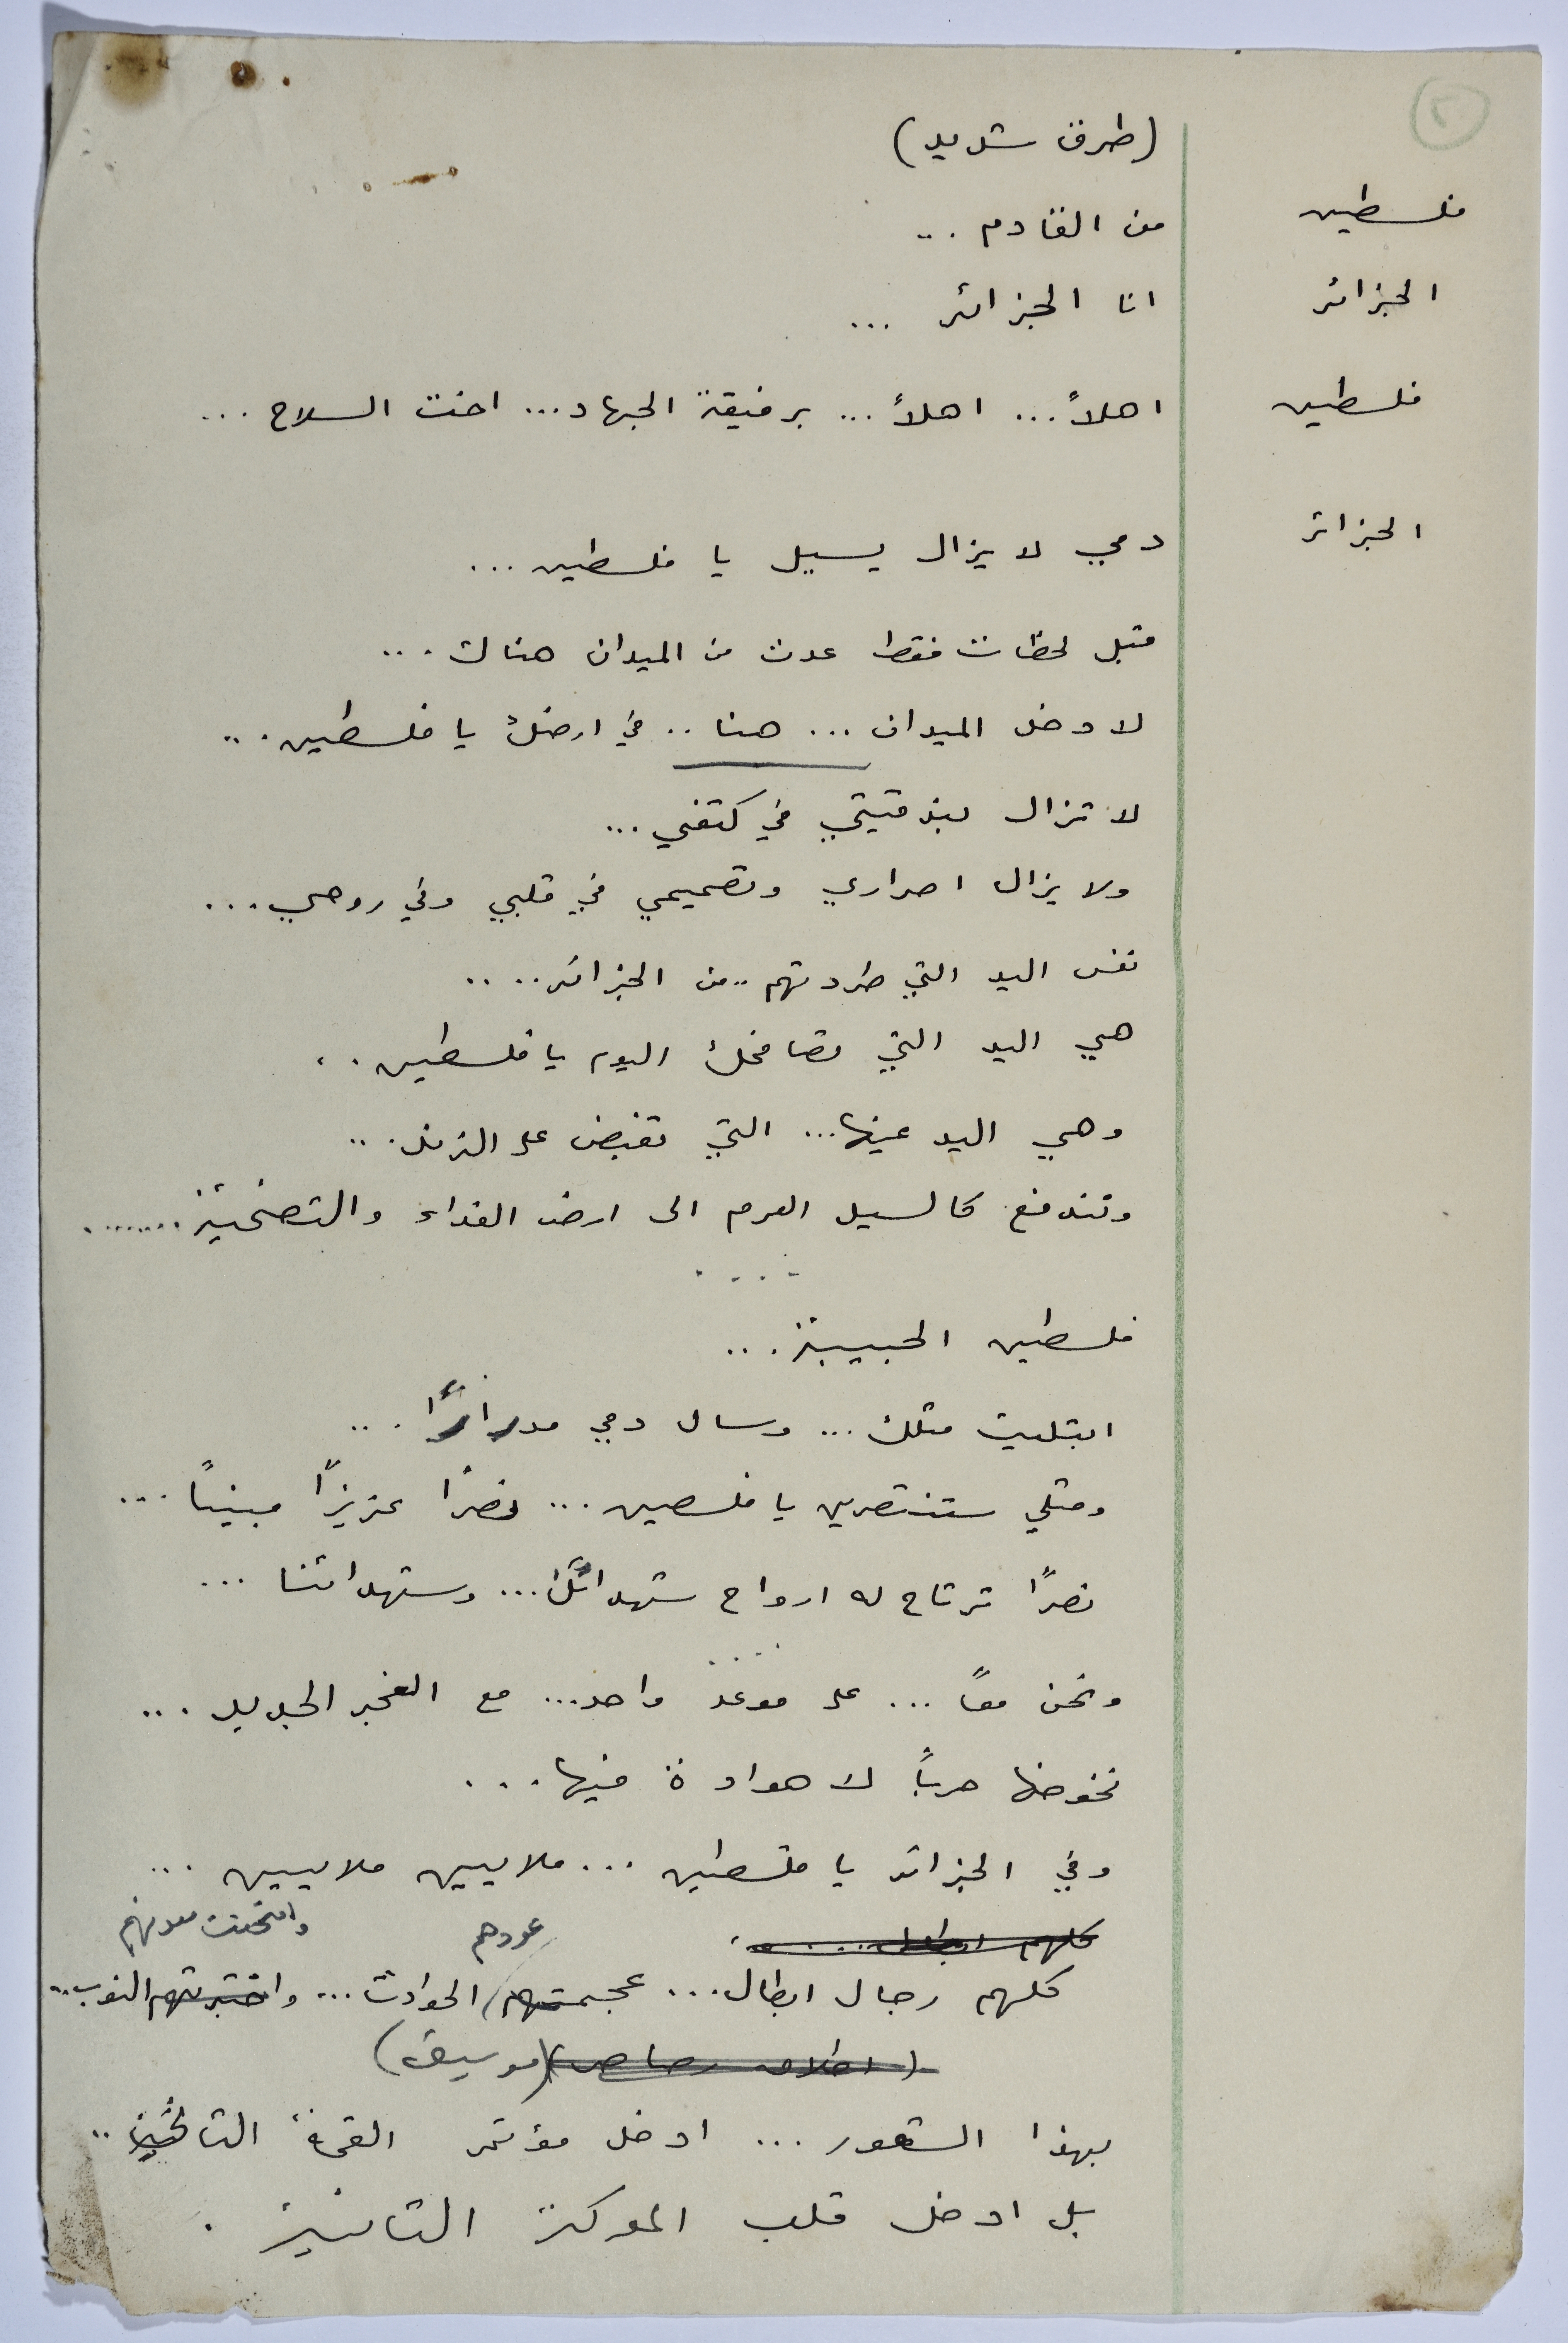 ٢
(طرق شديد)
فلسطين من القادم ...
الجزائر انا الجزائر ...
فلسطين اهلاً ... اهلاً ... برفيقة الجهاد ... اخت السلاح ...
الجزائر دمي لا يزال يسيل يا فلسطين ...
قبل لحظات فقط عدت من الميدان هناك ...
لادخل الميدان ... هنا .. في ارضك يا فلسطين ...
لا تزال بندقيتي في كتفي ...
ولا يزال اصراري وتصميمي في قلبي وفي روحي ...
نفس اليد التي طردتهم .. من الجزائر ....
هي اليد التي تصافحك اليوم يا فلسطين ..
وهي اليد عينها ... التي تقبض على الزناد ...
وتندفع كالسيل العرم الى ارض الفداء والتضحية ........
....
فلسطين الحبيبة ...
ابتليت مثلك ... وسال دمي مدراراً ...
ومثلي ستنتصرين يا فلسطين ... نصرًا عزيزاً مبيناً ...
نصرًا ترتاح له ارواح شهدائك ... وشهدائنا ...
ونحن معاً ... على موعد واحد ... مع الفجر الجديد ...
نخوضها حرباً لا هوادة فيها ...
وفي الجزائر يا فلسطين ... ملايين ملايين ...
كلهم ابطال ....
عودهم وامتحنت معدنهم
كلهم رجال ابطال ... عجمتهم الحوادث ... واختبرتهم النوب ..
(اطلاق رصاص) (موسيقى)
بهذا الشعور ... ادخل مؤتمر القمة الثاني ..
بل ادخل قلب المعركة الثانية .